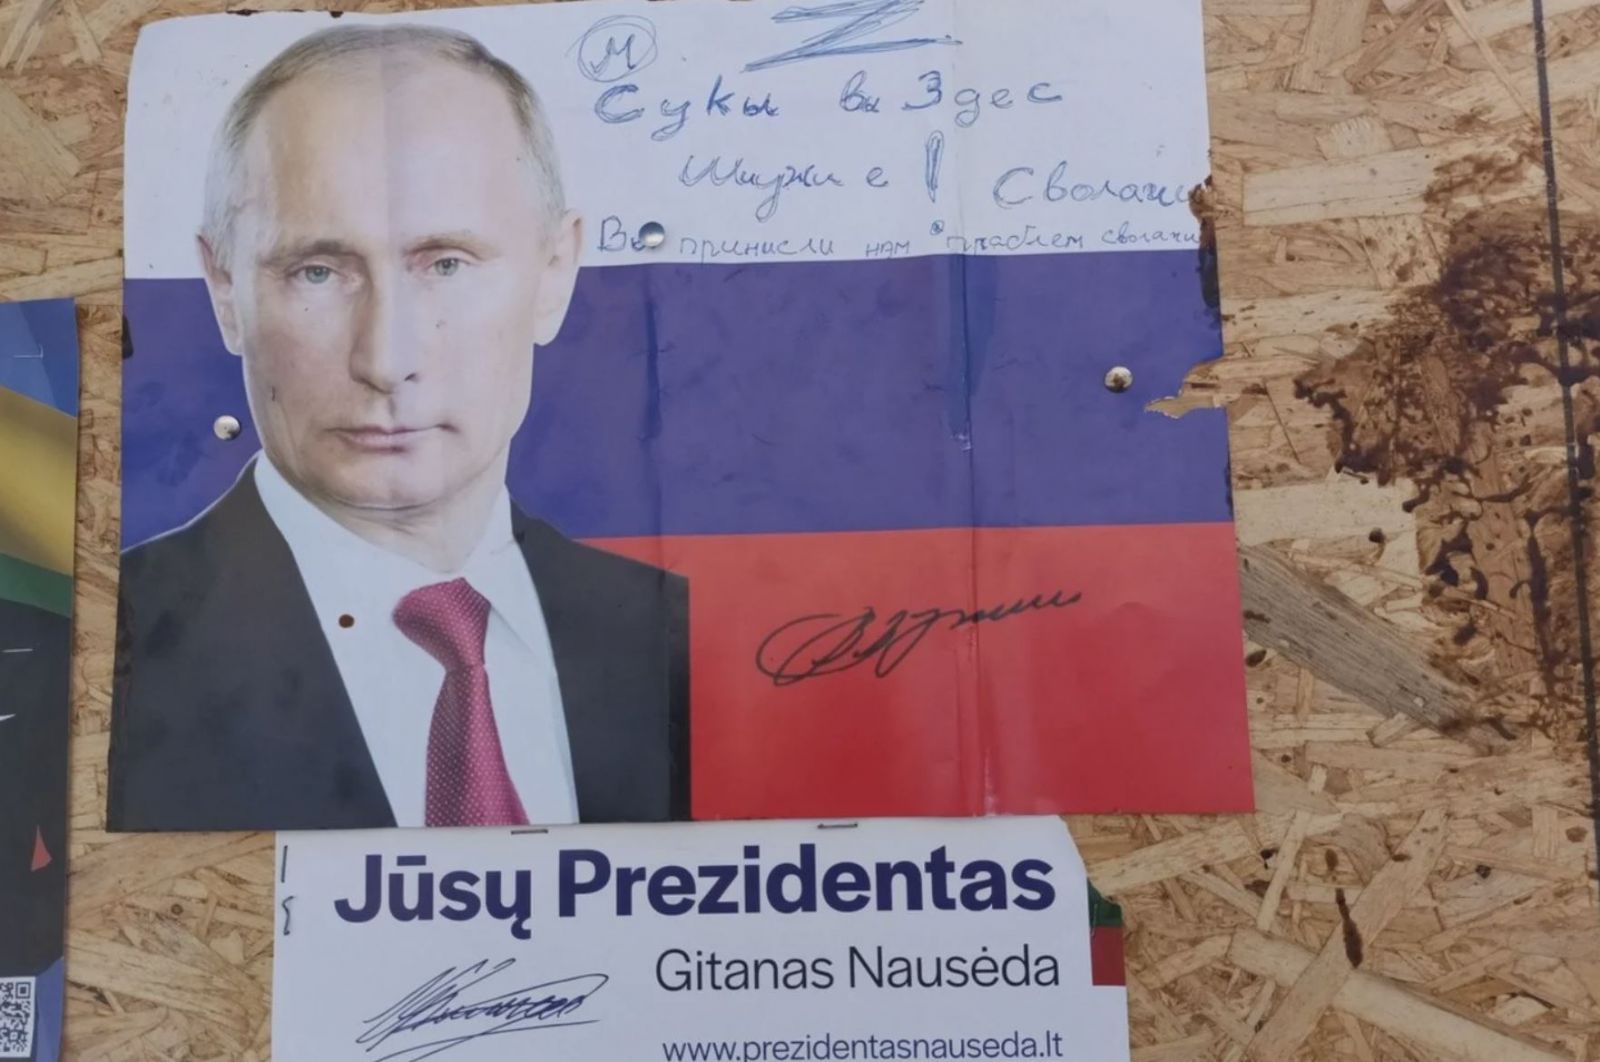 М Z
Суки вы Здес
Чужие ! Сволачи
Вы принисли нам праблем сволачи
Jūsų Prezidentas
Gitanas Nausėda
www.prezidentasnauseda.lt